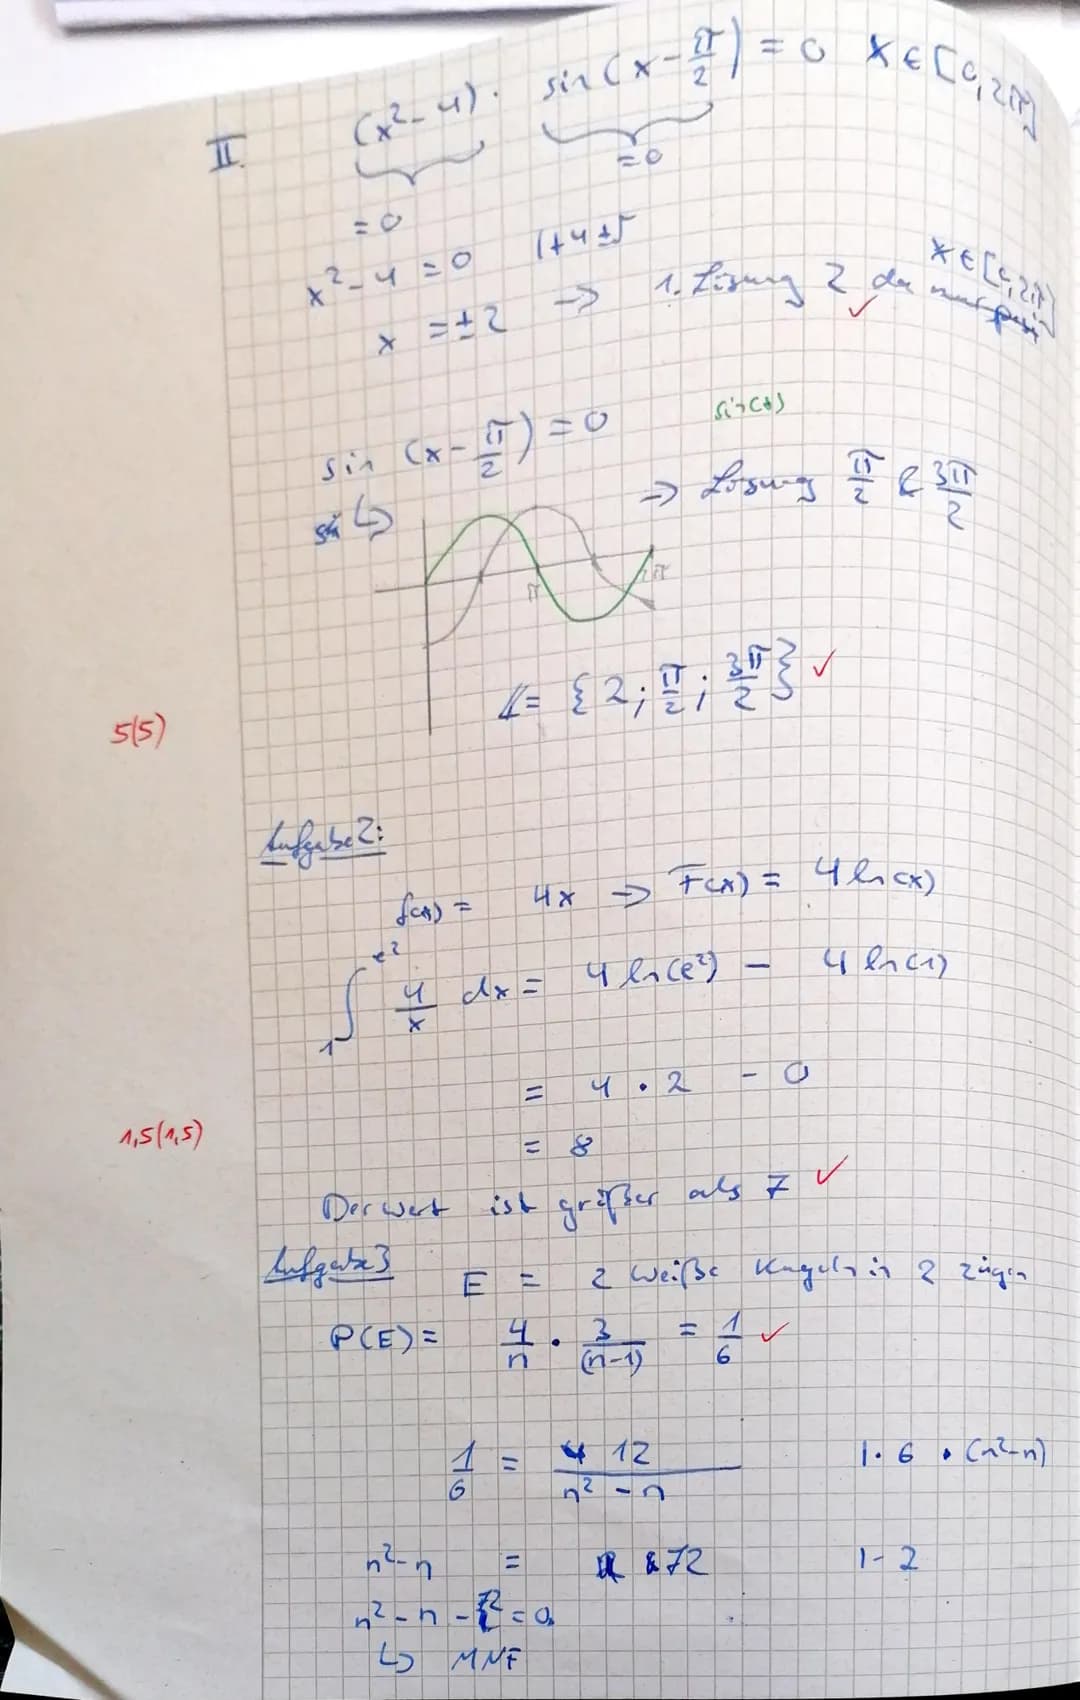 II. (x² - 4) · sin(x - π/2) = 0 x ∈ [0, 2π]
= 0
= 0
x² - 4 = 0 | +4 ±√
x = ±2 → 1. Lösung 2 da x ∈ [0, 2π]
sin(x)
sin (x - π/2) = 0
↳ → Lösung π/2 & 3π/2
π 2π
𝕃 = {2; π/2; 3π/2} ✓
5(5)
Aufgabe 2:
f(x) = 4x → F(x) = 4 ln(x)
∫₁^(e²) 4/x dx = 4 ln(e²) - 4 ln(1)
= 4 · 2 - 0
1,5(1,5)
= 8
Der wert ist größer als 7 ✓
Aufgabe 3
E = 2 weiße Kugeln in 2 zügen
P(E) = 4/n · 3/(n-1) = 1/6 ✓
1/6 = 12/(n² - n) | · 6 · (n² - n)
n² - n = 72 | - 2
n² - n - 72 = 0
↳ MNF